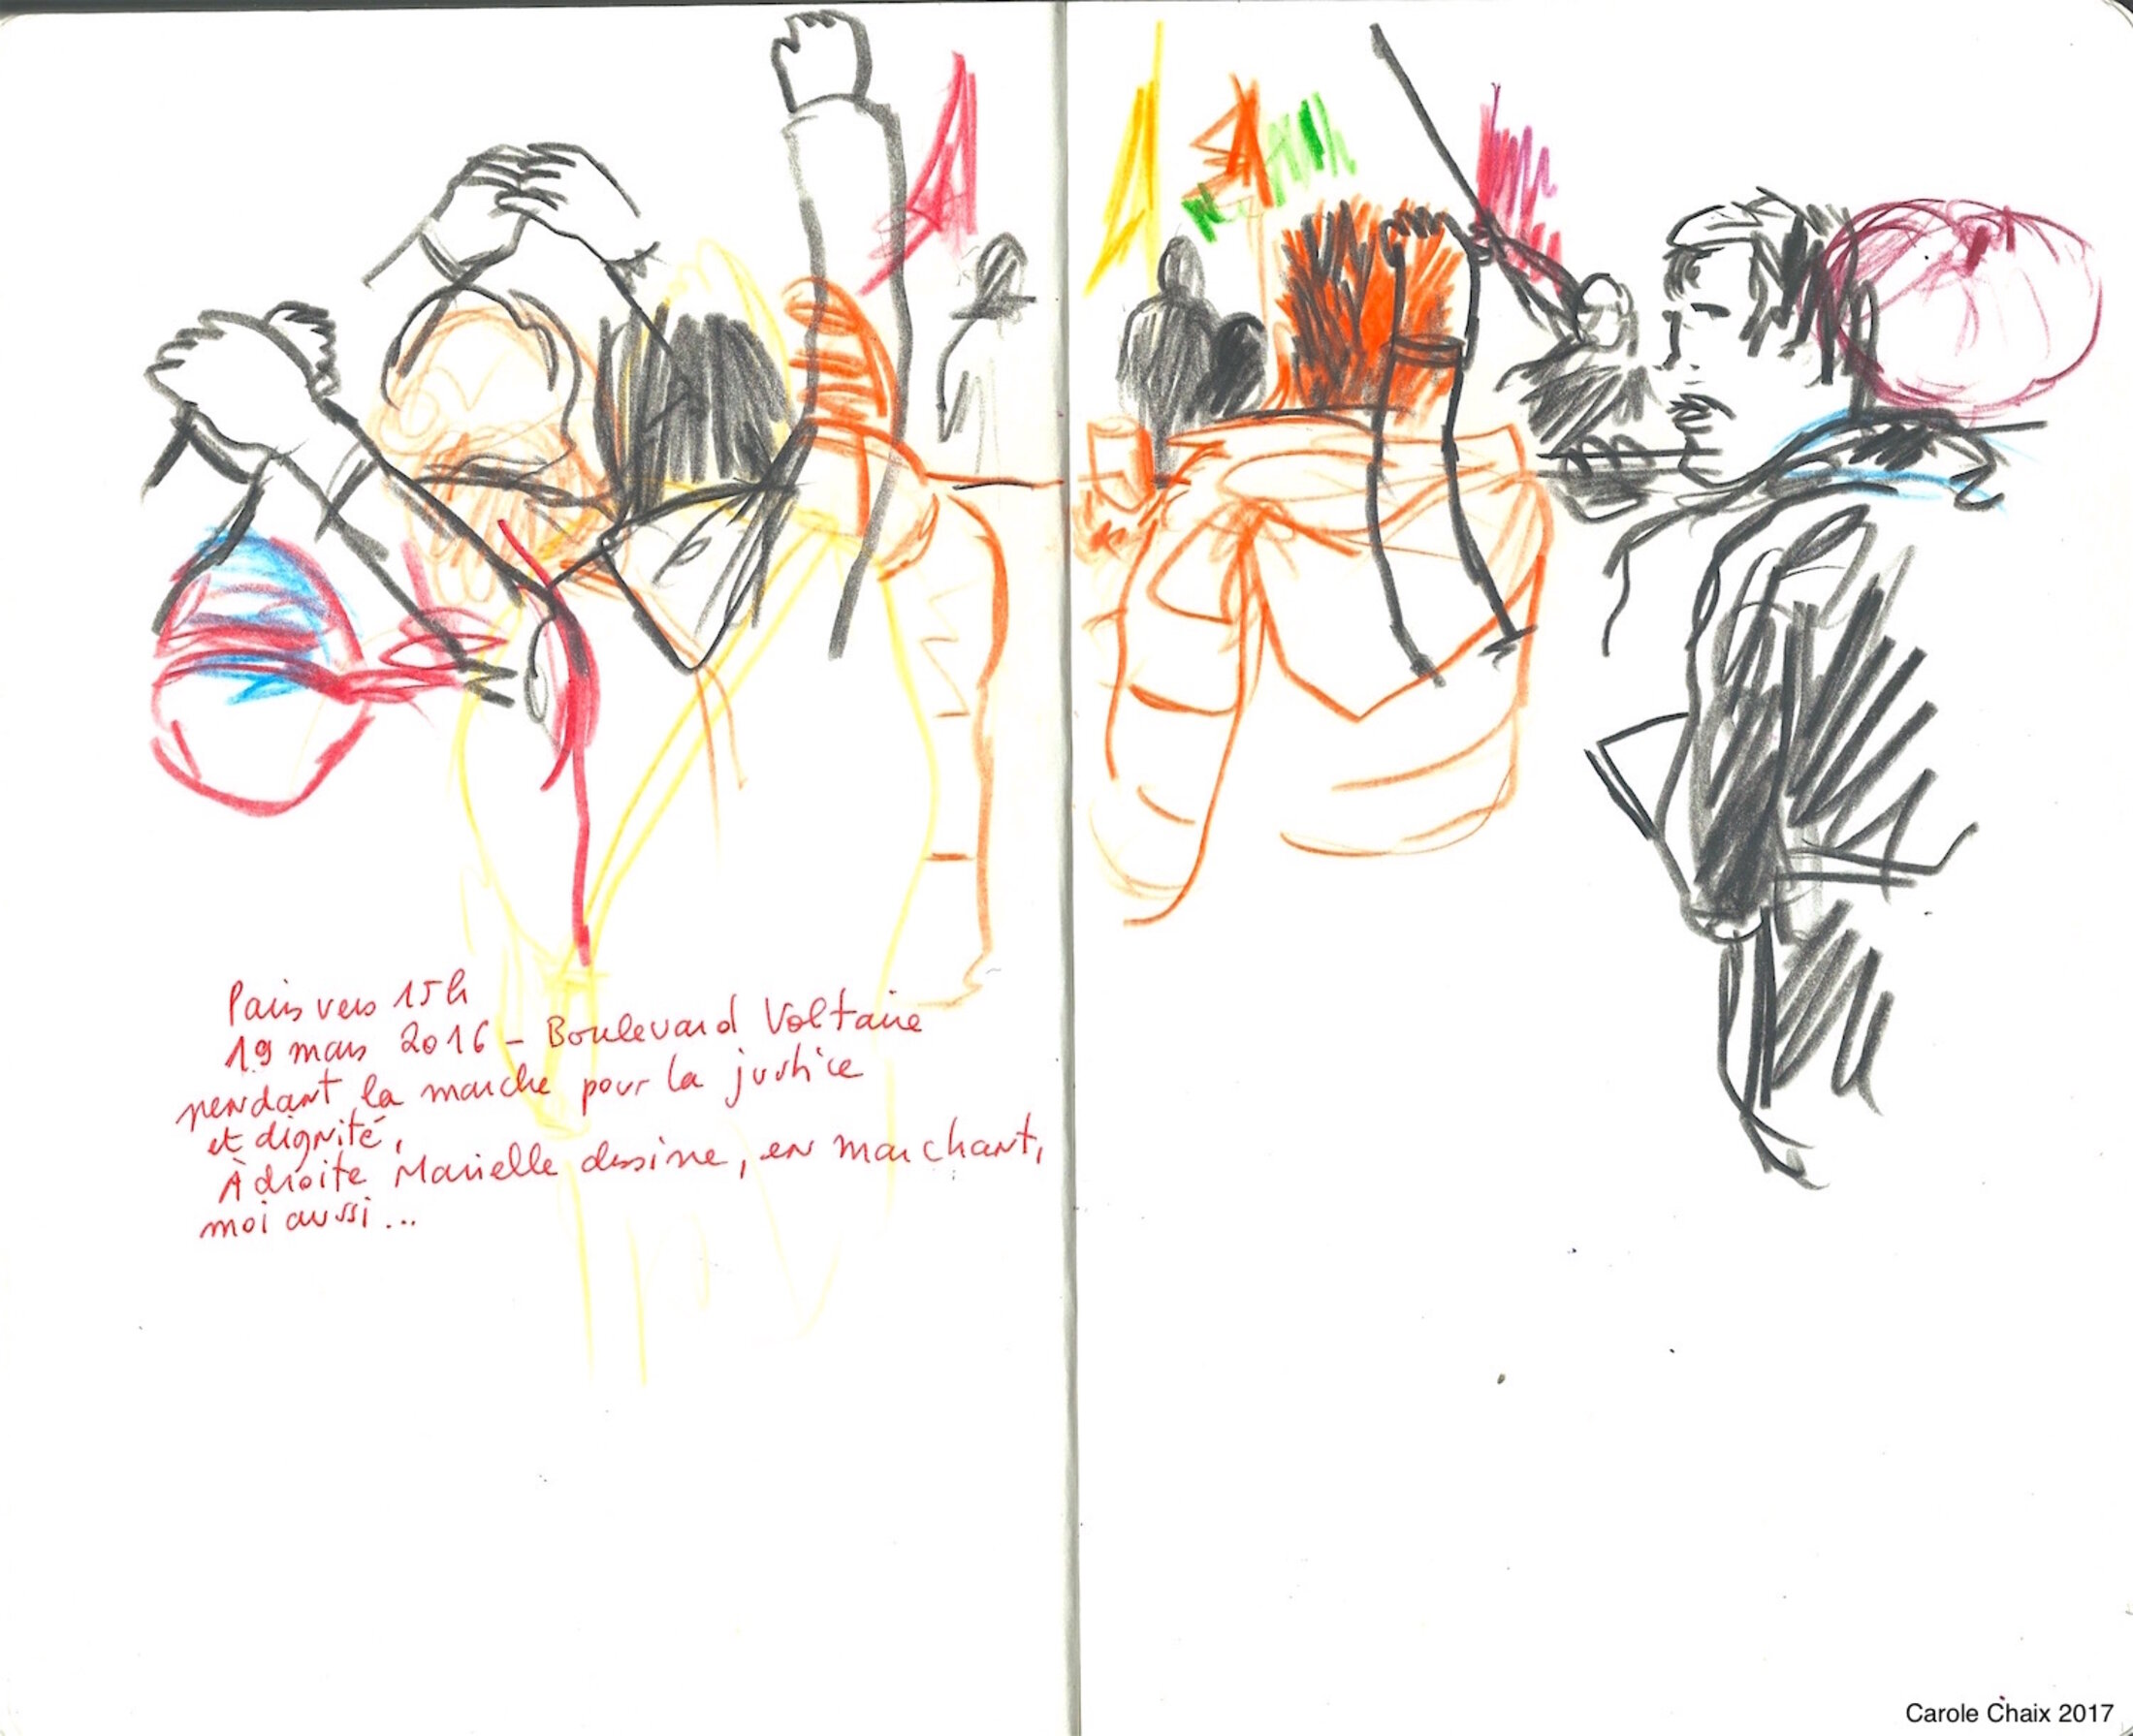 Paris vers 15h
19 mars 2016 - Boulevard Voltaire
pendant la marche pour la justice
et dignité,
À droite Marielle dessine, en marchant,
moi aussi...
Carole Chaix 2017